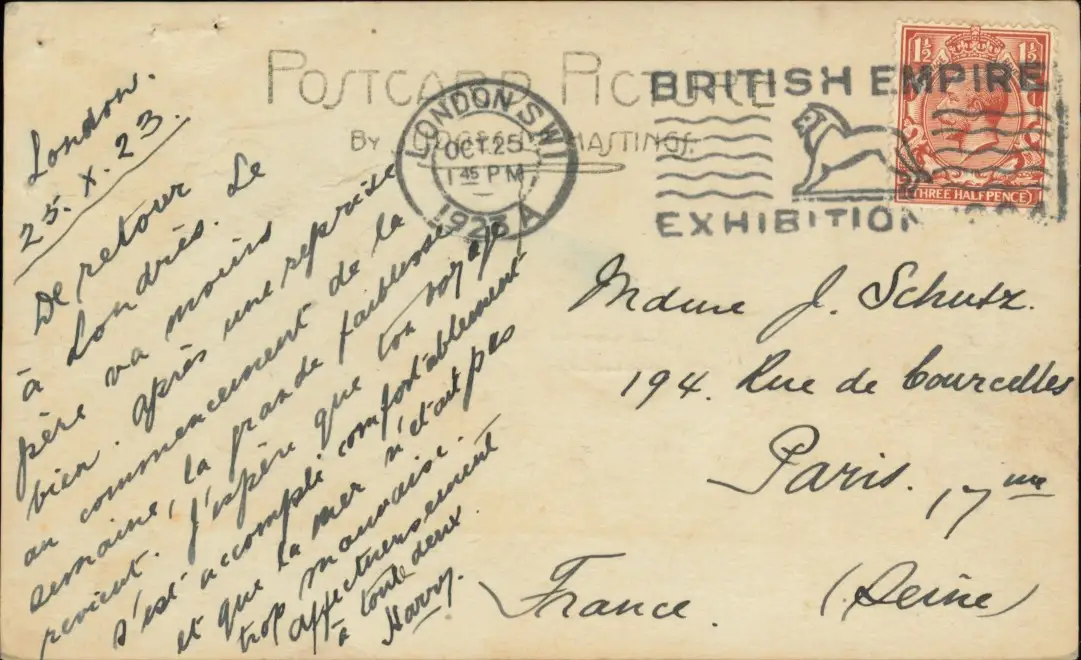 POSTCARD PICTURE
BY JUDGES LD HASTINGS.
LONDON. S.W.1
OCT 25
1 45 PM
1923 A
BRITISH EMPIRE
EXHIBITION 1924
1½ 1½
THREE HALFPENCE
London.
25. X. 23.
De retour
à Londrés. Le
père va moins
bien. Après une reprise
au commencement de la
semaine, la grande faiblesse
revient. J'espère que ton voyage
s'est accompli comfortablement
et que la mer n'était pas
trop mauvaise.
affectueusement
à toute deux.
Harry.
Mdme J. Schutz.
194. Rue de Courcelles
Paris. 17me
France. (Seine)